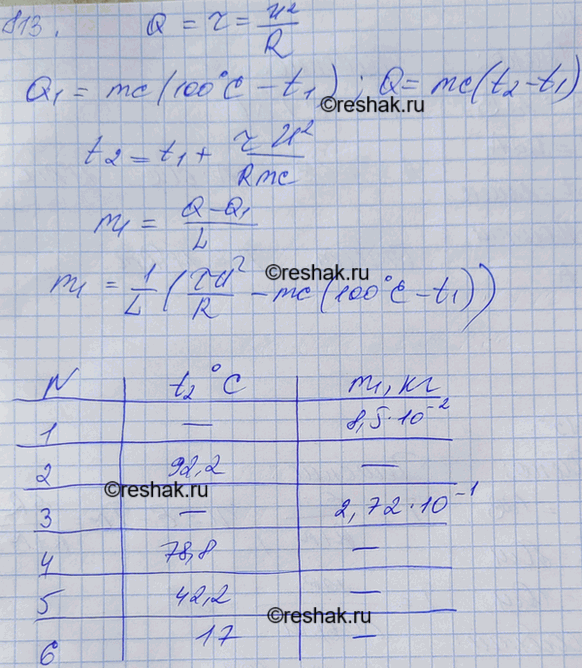 813. Q = τ = u²/R
Q₁ = mc(100°C - t₁); Q = mc(t₂ - t₁)
©reshak.ru
t₂ = t₁ + τU²/Rmc
m₁ = Q - Q₁/L
©reshak.ru
m₁ = 1/L (τU²/R - mc(100°C - t₁))
N t₂°C m₁, кг
1 — 8,5·10⁻²
2 92,2 —
©reshak.ru
3 — 2,72·10⁻¹
4 78,8 —
5 42,2 —
©reshak.ru
6 17 —